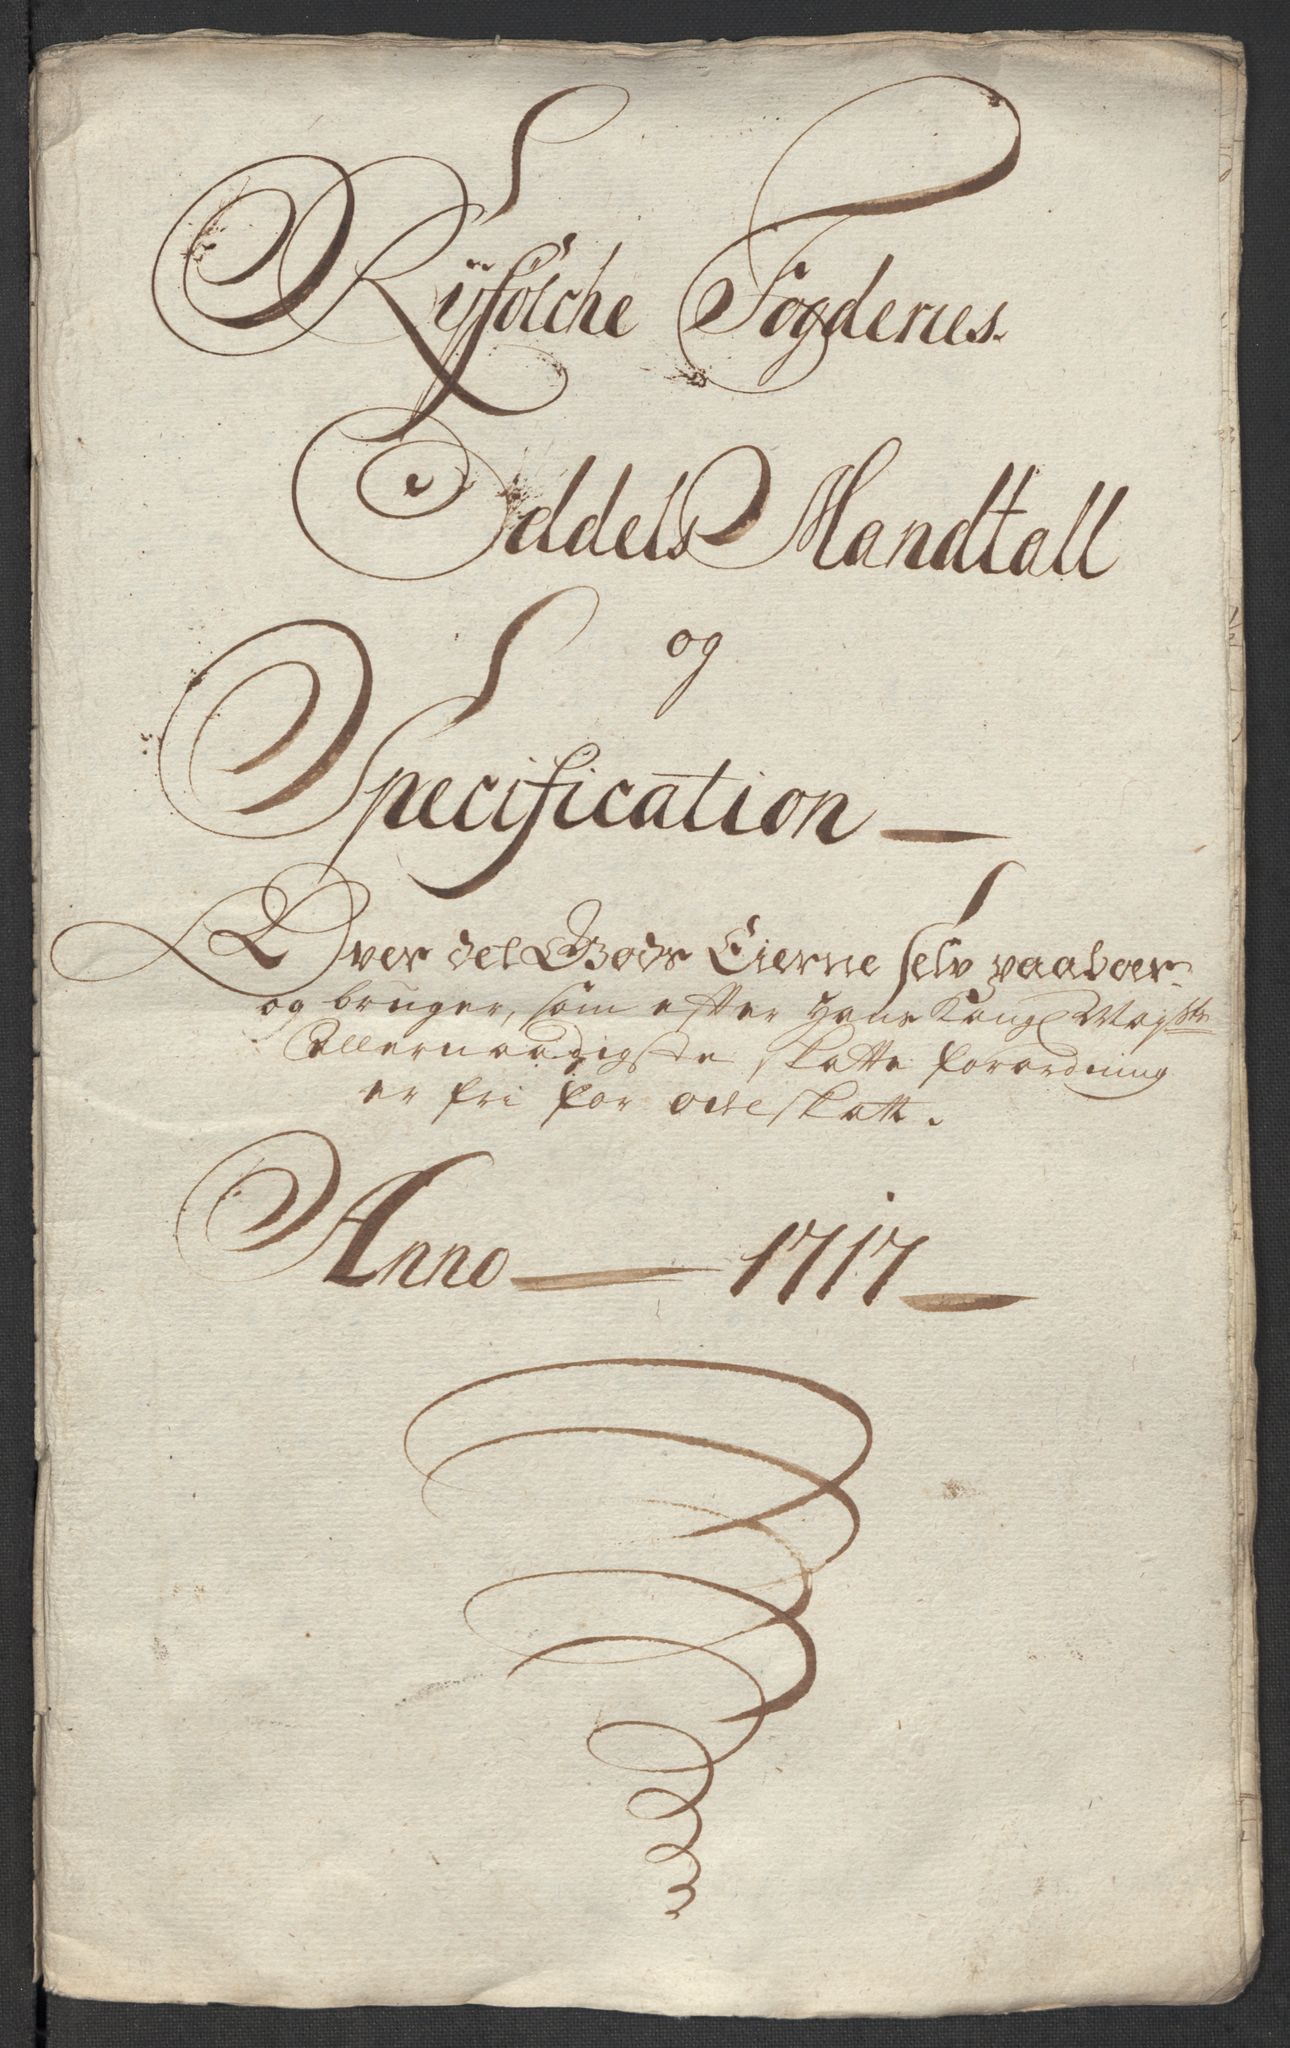 Ryfölche Fogderies
Oddels Mandtall
og
Specification
Over det Gods Eierne selv paaboer
og bruger, som efter Hans Kongl Mayst
Allernaadigste skatte forordning
er fri for odelskatt.
Anno 1717